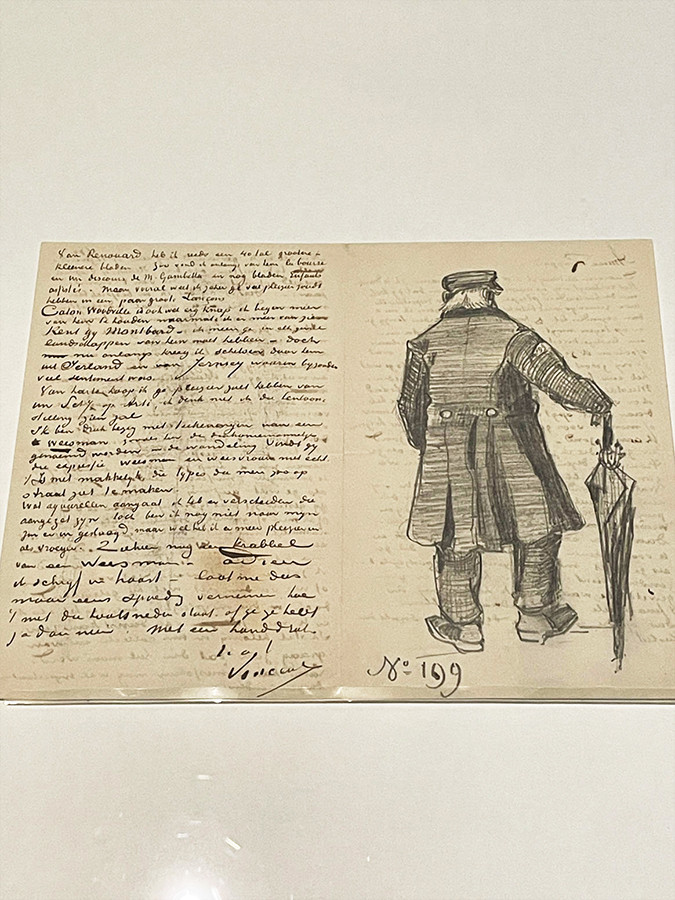 Van Renouard heb ik reeds een 40tal grootere &
kleinere bladen. Zoo vond ik onlangs van hem la bourse
en un discours de M. Gambetta en nog bladen Enfants
assistés. Maar vooral wat ik zeker ge veel pleizier zoudt
hebben in een paar groote Lançons
Caton Woodville is ook wel erg knap ik begin meer
van hem te houden naarmate ik er meer van zie
Kent gy Montbard – ik meen ge in elk geval
landschappen van hem moet hebben – doch
nu onlangs kreeg ik schetsen door hem
uit Ierland en van Jersey waarin byzonder
veel sentiment was.
Van harte hoop ik ge pleizier zult hebben van
uw Schy op Arti, ik denk niet ik die tentoon-
stelling zien zal
Ik ben druk bezig met teekeningen van een
weesman zooals hier de diakoniemannetjes
genoemd worden in de wandeling Vondt gy
die expressie weesman en weesvrouw niet echt
't Is niet makkelyk die types die men zoo op
straat ziet te maken.
Wat aquarellen aangaat ik heb er verscheiden die
aangezet zyn doch ben ik nog niet naar myn
zin er in geslaagd, maar wel heb ik er meer pleizier in
als vroeger. Ziehier nog een krabbel
van een weesman – adieu
ik schryf in haast – laat me dus
maar eens spoedig vernemen hoe
't met die houtsneden staat of ge ze hebt
ja dan neen Met een handdruk
t. à t.
Vincent
No 199